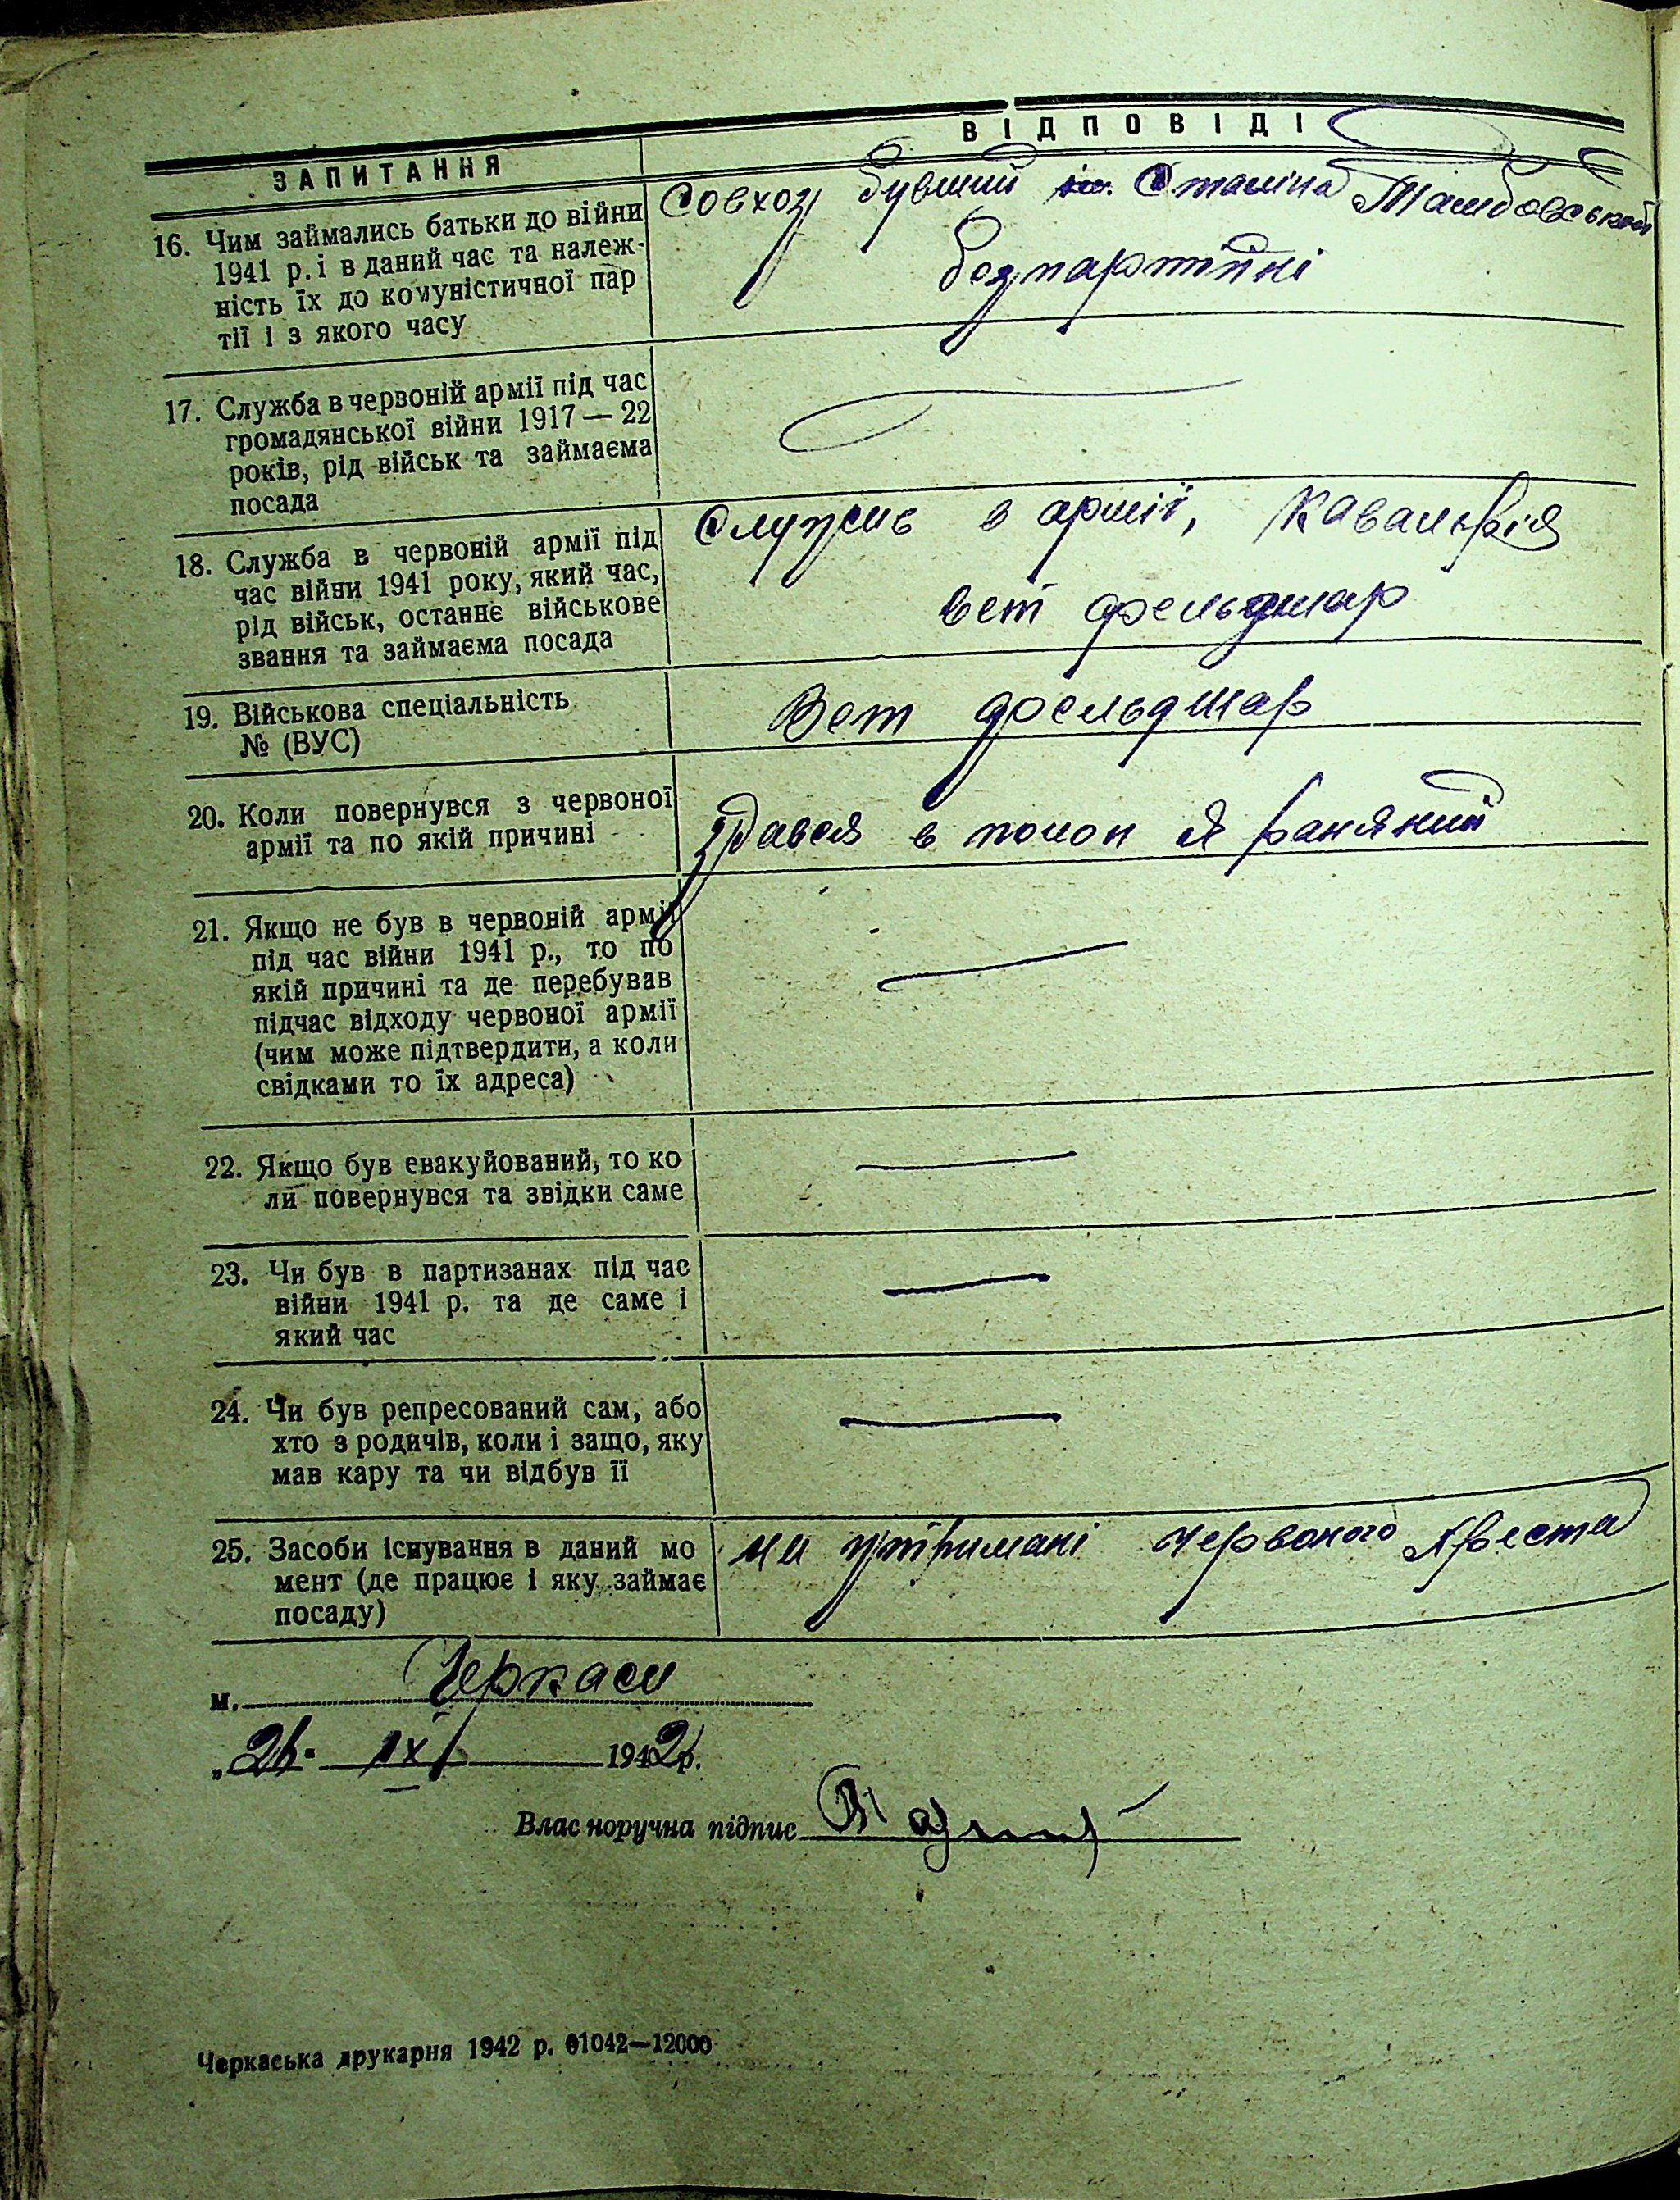 ЗАПИТАННЯ
ВІДПОВІДІ
16. Чим займались батьки до війни
1941 р. і в даний час та належ-
ність їх до комуністичної пар
тії і з якого часу
Совхоз бувший ім. Сталіна Тамбовської
безпартійні
17. Служба в червоній армії під час
громадянської війни 1917 — 22
років, рід військ та займаєма
посада
18. Служба в червоній армії під
час війни 1941 року, який час,
рід військ, останнє військове
звання та займаєма посада
Служив в армії, Кавалерія
вет фельдшар
19. Військова спеціальність
№ (ВУС)
Вет фельдшар
20. Коли повернувся з червоної
армії та по якій причині
здався в полон я раняний
21. Якщо не був в червоній армії
під час війни 1941 р., то по
якій причині та де перебував
підчас відходу червоної армії
(чим може підтвердити, а коли
свідками то їх адреса)
22. Якщо був евакуйований, то ко
ли повернувся та звідки саме
23. Чи був в партизанах під час
війни 1941 р. та де саме і
який час
24. Чи був репресований сам, або
хто з родичів, коли і защо, яку
мав кару та чи відбув її
25. Засоби існування в даний мо
мент (де працює і яку займає
посаду)
на утримані червоного хреста
м. Черкаси
1942 р.
Власноручна підпис
Черкаська друкарня 1942 р. 01042—12000